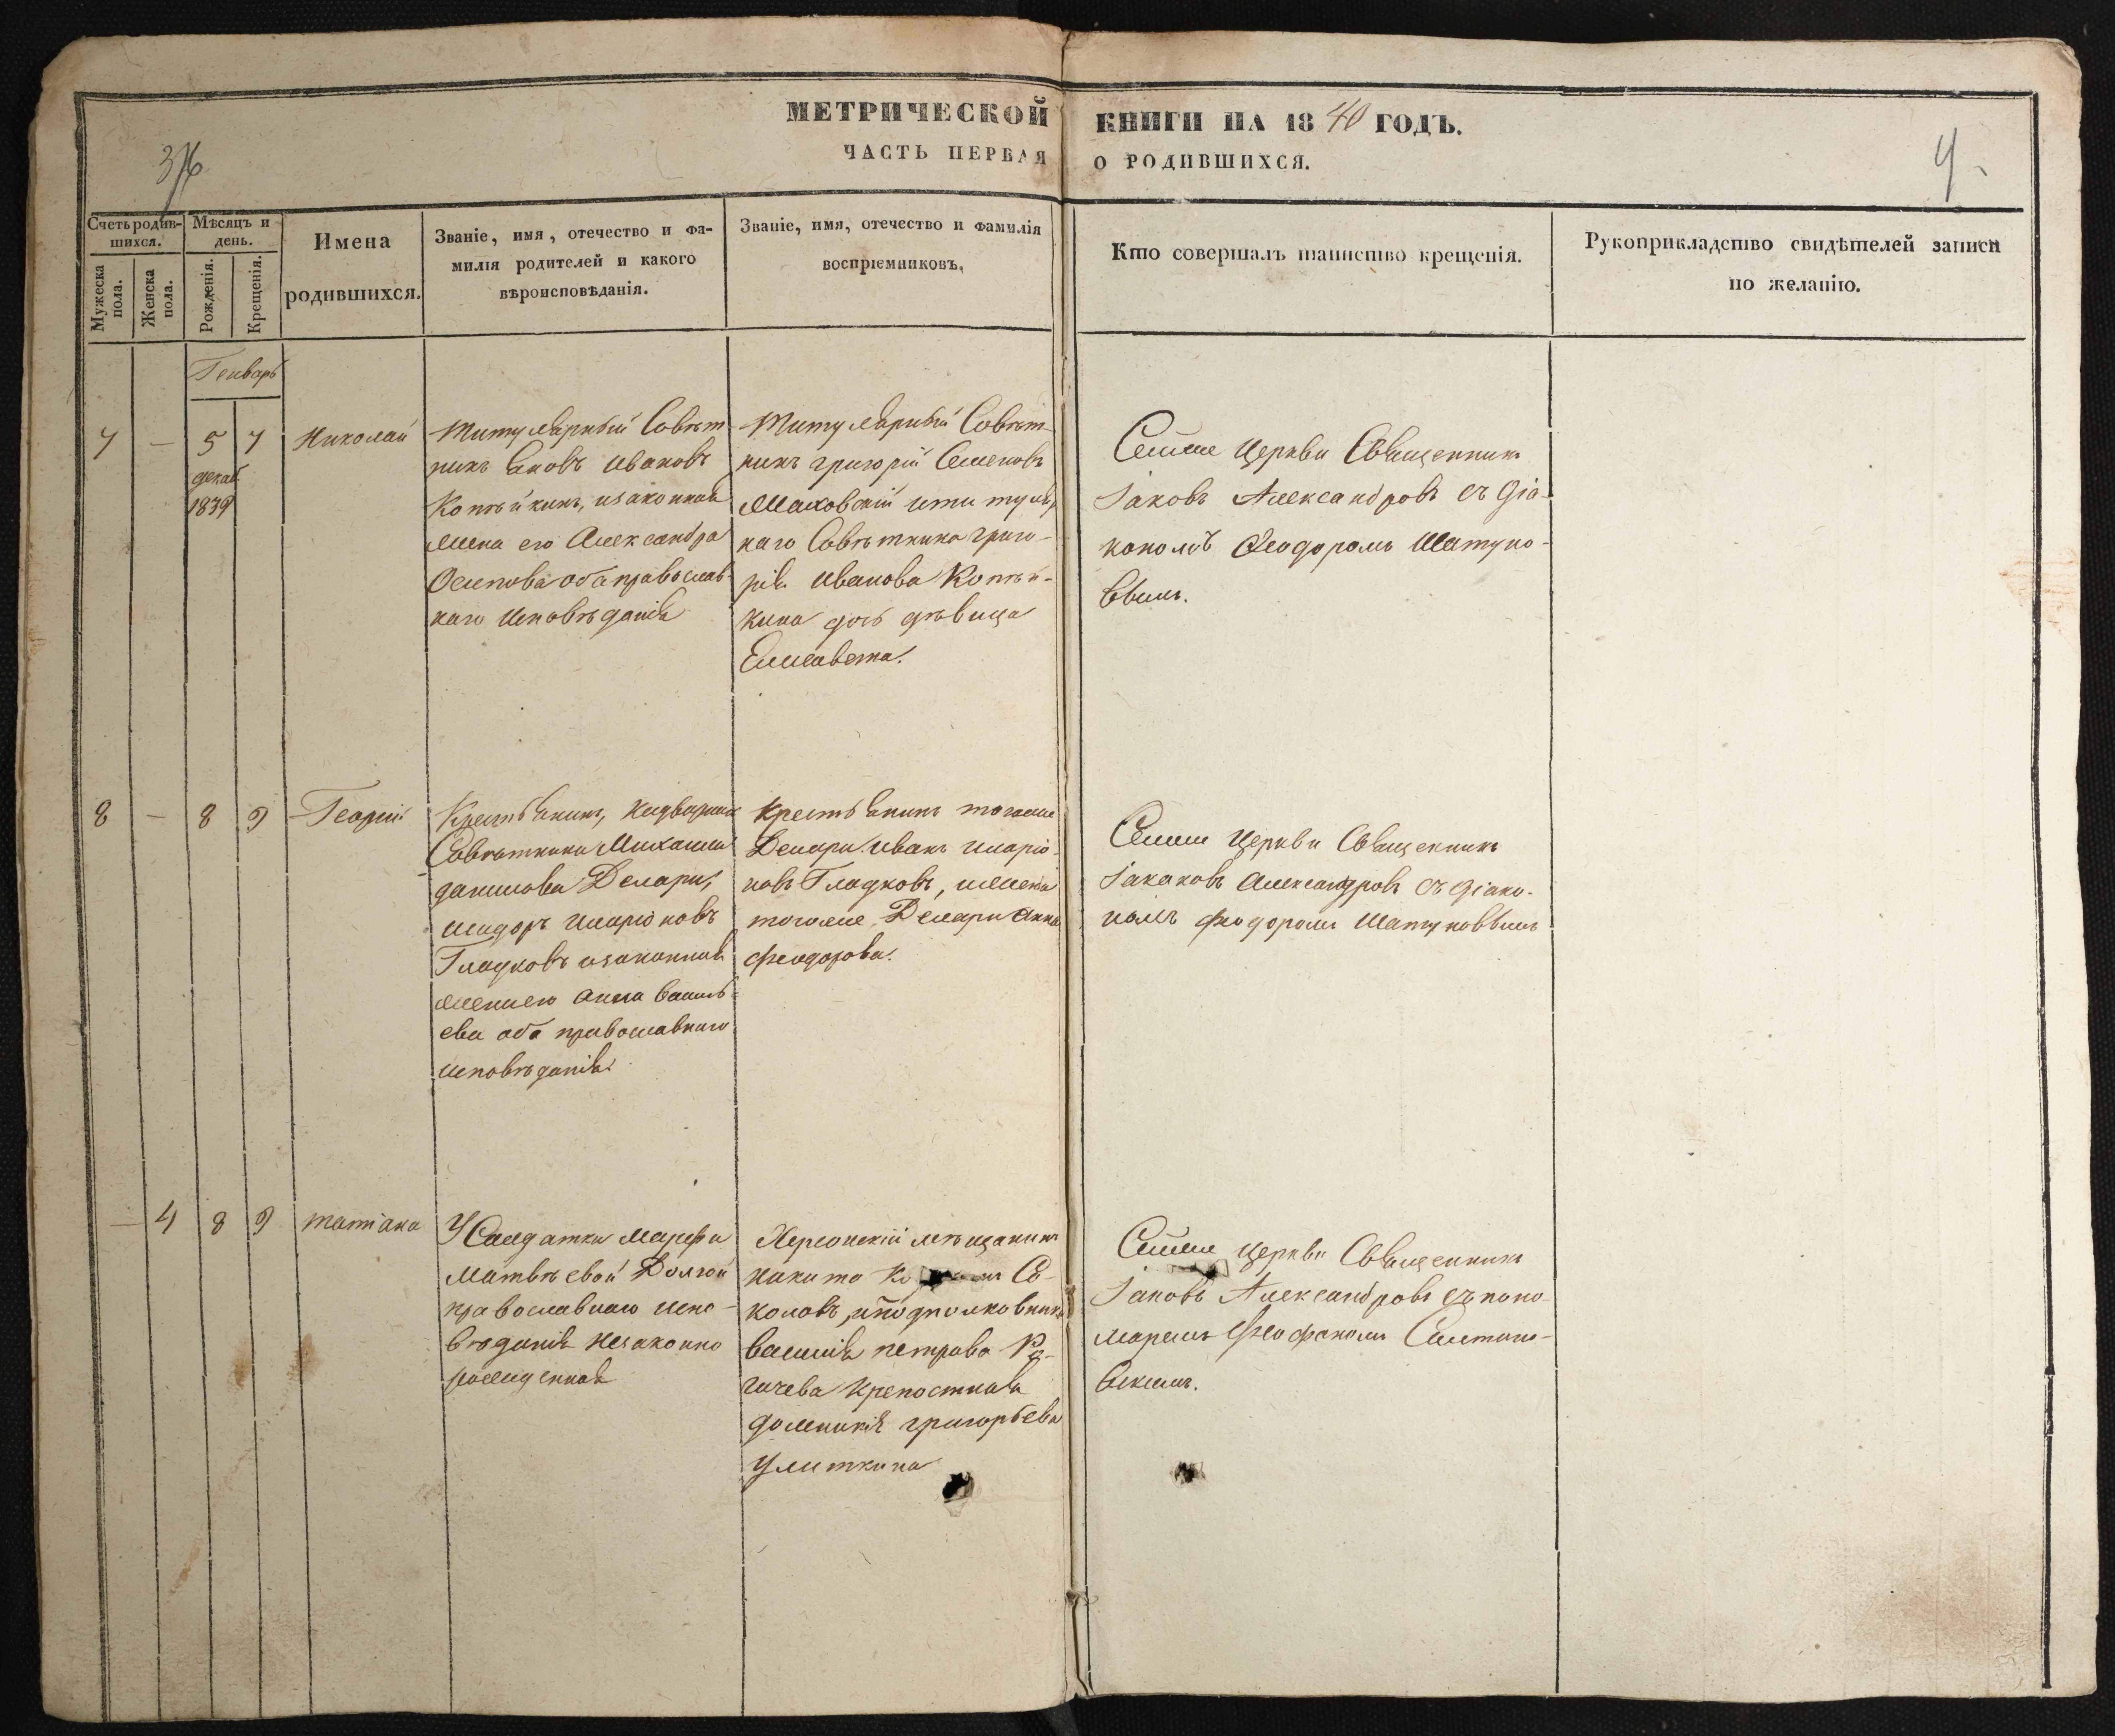 МЕТРИЧЕСКОЙ КНИГИ НА 1840 ГОДЪ.
ЧАСТЬ ПЕРВАЯ О РОДИВШИХСЯ.
376
4
Счетъ родившихся.
Мужеска пола.
Женска пола.
Мѣсяцъ и день.
Рожденія.
Крещенія.
Имена
родившихся.
Званіе, имя, отечество и фа-
милія родителей и какого
вѣроисповѣданія.
Званіе, имя, отечество и фамилія
воспріемниковъ.
Кто совершалъ таинство крещенія.
Рукоприкладство свидѣтелей записи
по желанію.
Генварь
7 — 5 7
декаб
1839
Николай
Титулярный Совѣт
никъ Яковъ Ивановъ
Копѣйкинъ, изаконная
жена его Александра
Осипова оба православ
наго Исповѣданія
Титулярный Совѣт-
никъ григорій Семеновъ
Маковскій ититуляр
наго Совѣтника григо-
рія Иванова Копѣй-
кина дочь дѣвица
Елисавета.
Сейже Церкви Священникъ
Іаковъ Александровъ съ діа-
кономъ Ѳеодоромъ Шатуно-
вымъ.
8 — 8 9
Георгій
Крестьянинъ, надворнаго
Совѣтника Михаила
данилова Делари,
исидоръ иларіоновъ
Гладковъ изаконная
женаего анна василь-
ева оба православнаго
исповѣданія.
крестьянинъ тогоже
Делари иванъ иларіо-
новъ Гладковъ, ижена
тогоже Делари анна
феодорова.
Сейже Церкви Священникъ
Іакаковъ александровъ съ діако-
номъ феодоромъ Шатуновымъ
— 4 8 9
татіана
У Салдатки Марфы
Матвѣевой Долгой
православнаго испо-
вѣданія незаконно
рожденная
Херсонскій мѣщанинъ
никита Со-
коловъ, иподполковника
василія петрова
гачева крепостная
домникія григорьева
Улиткина
Сейже церкви Священникъ
Іаковъ Александровъ съ поно-
маремъ Феофаномъ Салтано-
вскимъ.